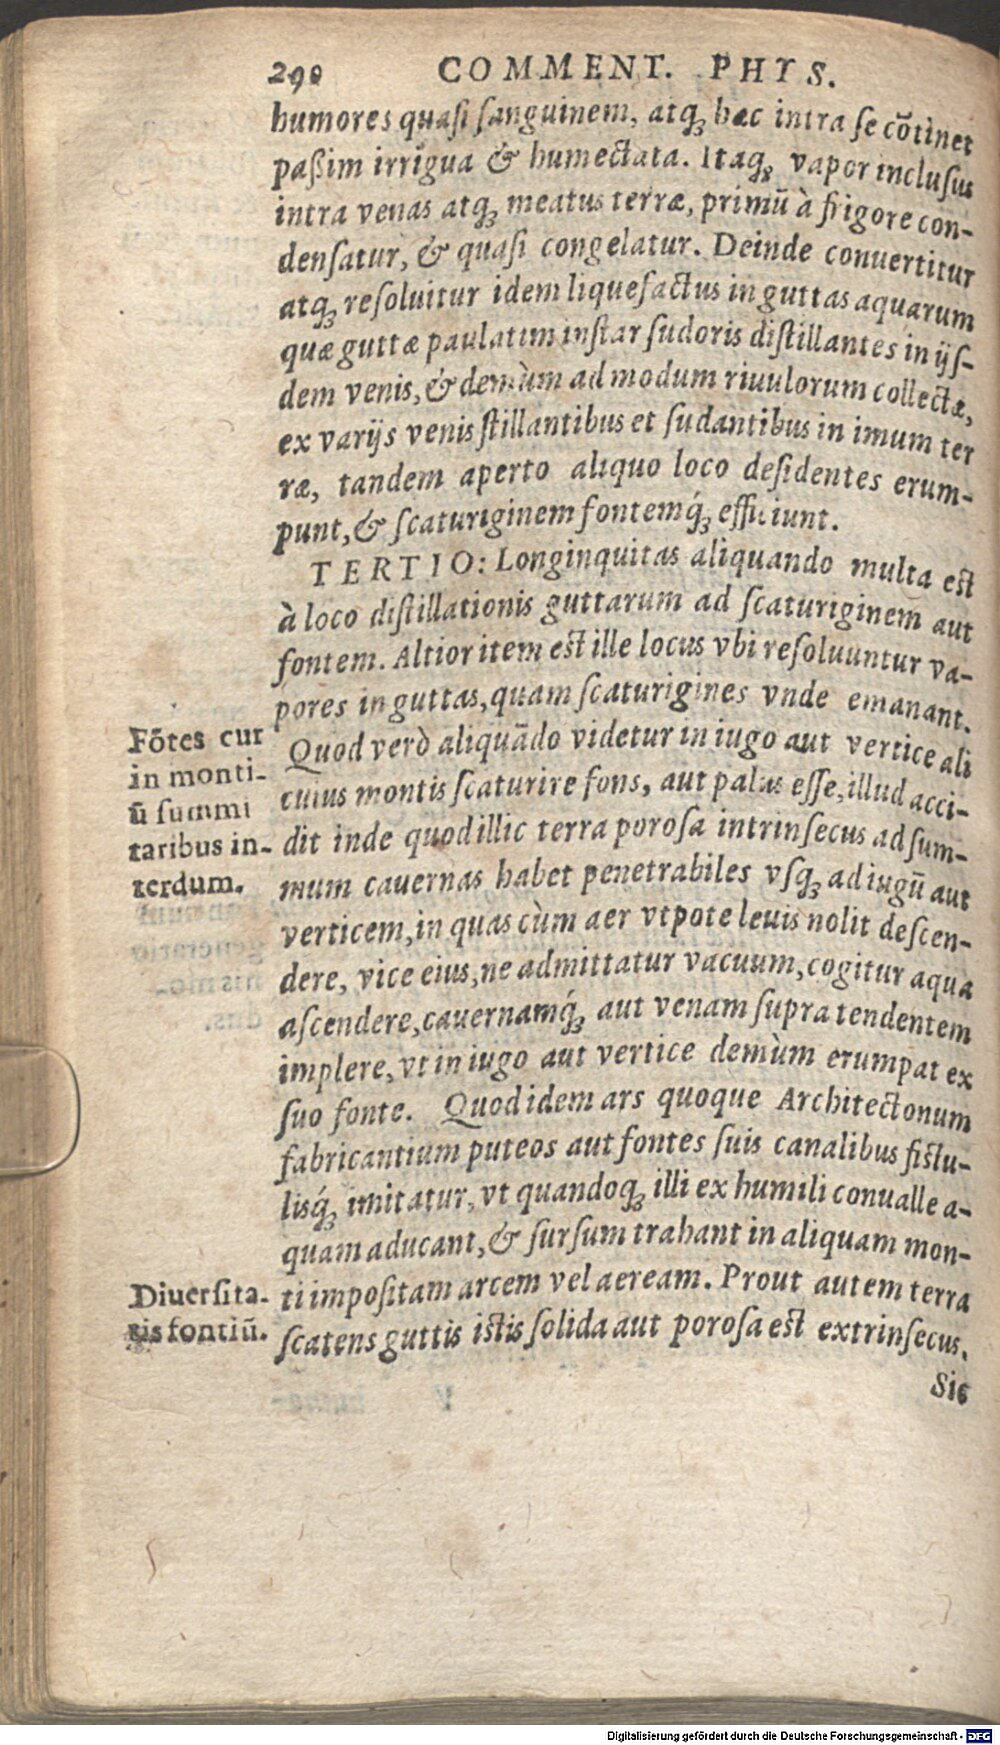 290 COMMENT. PHYS.
humores quasi sanguinem, atq; hæc intra se cõtinet
paßim irrigua & humectata. Itaq; vapor inclusus
intra venas atq; meatus terræ, primũ à frigore con-
densatur, & quasi congelatur. Deinde conuertitur
atq; resoluitur idem liquefactus in guttas aquarum
quæ guttæ paulatim instar sudoris distillantes in ijs-
dem venis, & demùm ad modum riuulorum collectæ,
ex varijs venis stillantibus et sudantibus in imum ter
ræ, tandem aperto aliquo loco desidentes erum-
punt, & scaturiginem fontemq́; efficiunt.
TERTIO: Longinquitas aliquando multa est
à loco distillationis guttarum ad scaturiginem aut
fontem. Altior item est ille locus vbi resoluuntur va-
pores in guttas, quam scaturigines vnde emanant.
Quod verò aliquãdo videtur in iugo aut vertice ali
cuius montis scaturire fons, aut palus esse, illud acci-
dit inde quod illic terra porosa intrinsecus ad sum-
mum cauernas habet penetrabiles vsq; ad iugũ aut
verticem, in quas cùm aer vtpote leuis nolit descen-
dere, vice eius, ne admittatur vacuum, cogitur aqua
ascendere, cauernamq́; aut venam supra tendentem
implere, vt in iugo aut vertice demùm erumpat ex
suo fonte. Quod idem ars quoque Architectonum
fabricantium puteos aut fontes suis canalibus fistu-
lisq́; imitatur, vt quandoq; illi ex humili conualle a-
quam aducant, & sursum trahant in aliquam mon-
ti impositam arcem vel aeream. Prout autem terra
scatens guttis istis solida aut porosa est extrinsecus.
Sic
Fõtes cur
in monti-
ũ summi
taribus in-
terdum.
Diuersita-
tis fontiũ.
Digitalisierung gefördert durch die Deutsche Forschungsgemeinschaft - DFG